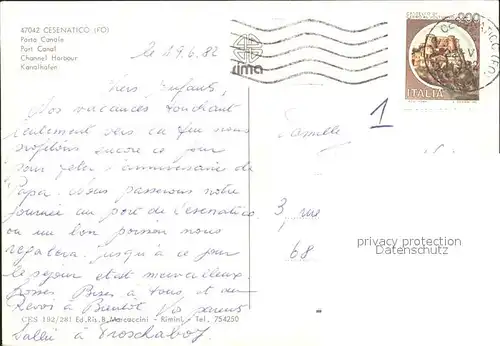 47042 CESENATICO (FO)
Porto Canale
Port Canal
Channel Harbour
Kanalhafen
le 19.6.82
Chers Enfants,
Nos vacances touchant
lentement vers sa fin nous
profitons encore ce jour
pour fêter l'anniversaire de
Papa. Nous passerons notre
journée au port de Cesenatico
ou un bon poisson nous
régalera. jusqu'à ce jour
le séjour etait merveilleux
Grosses Bises à tous et au
Revoir à Bientôt Vos parents
Salut à
CES 192/281 Ed. Ris. B. Marcaccini - Rimini - Tel. 754250
ITALIA
Famille
1
3, rue
68
privacy protection
Datenschutz